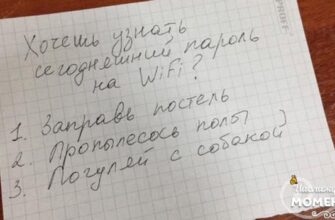 Хочешь узнать
сегодняшний пароль
на WiFi?
1. Заправь постель
2. Пропылесось полы
3. Погуляй с собакой
PROFF
МОМЕН